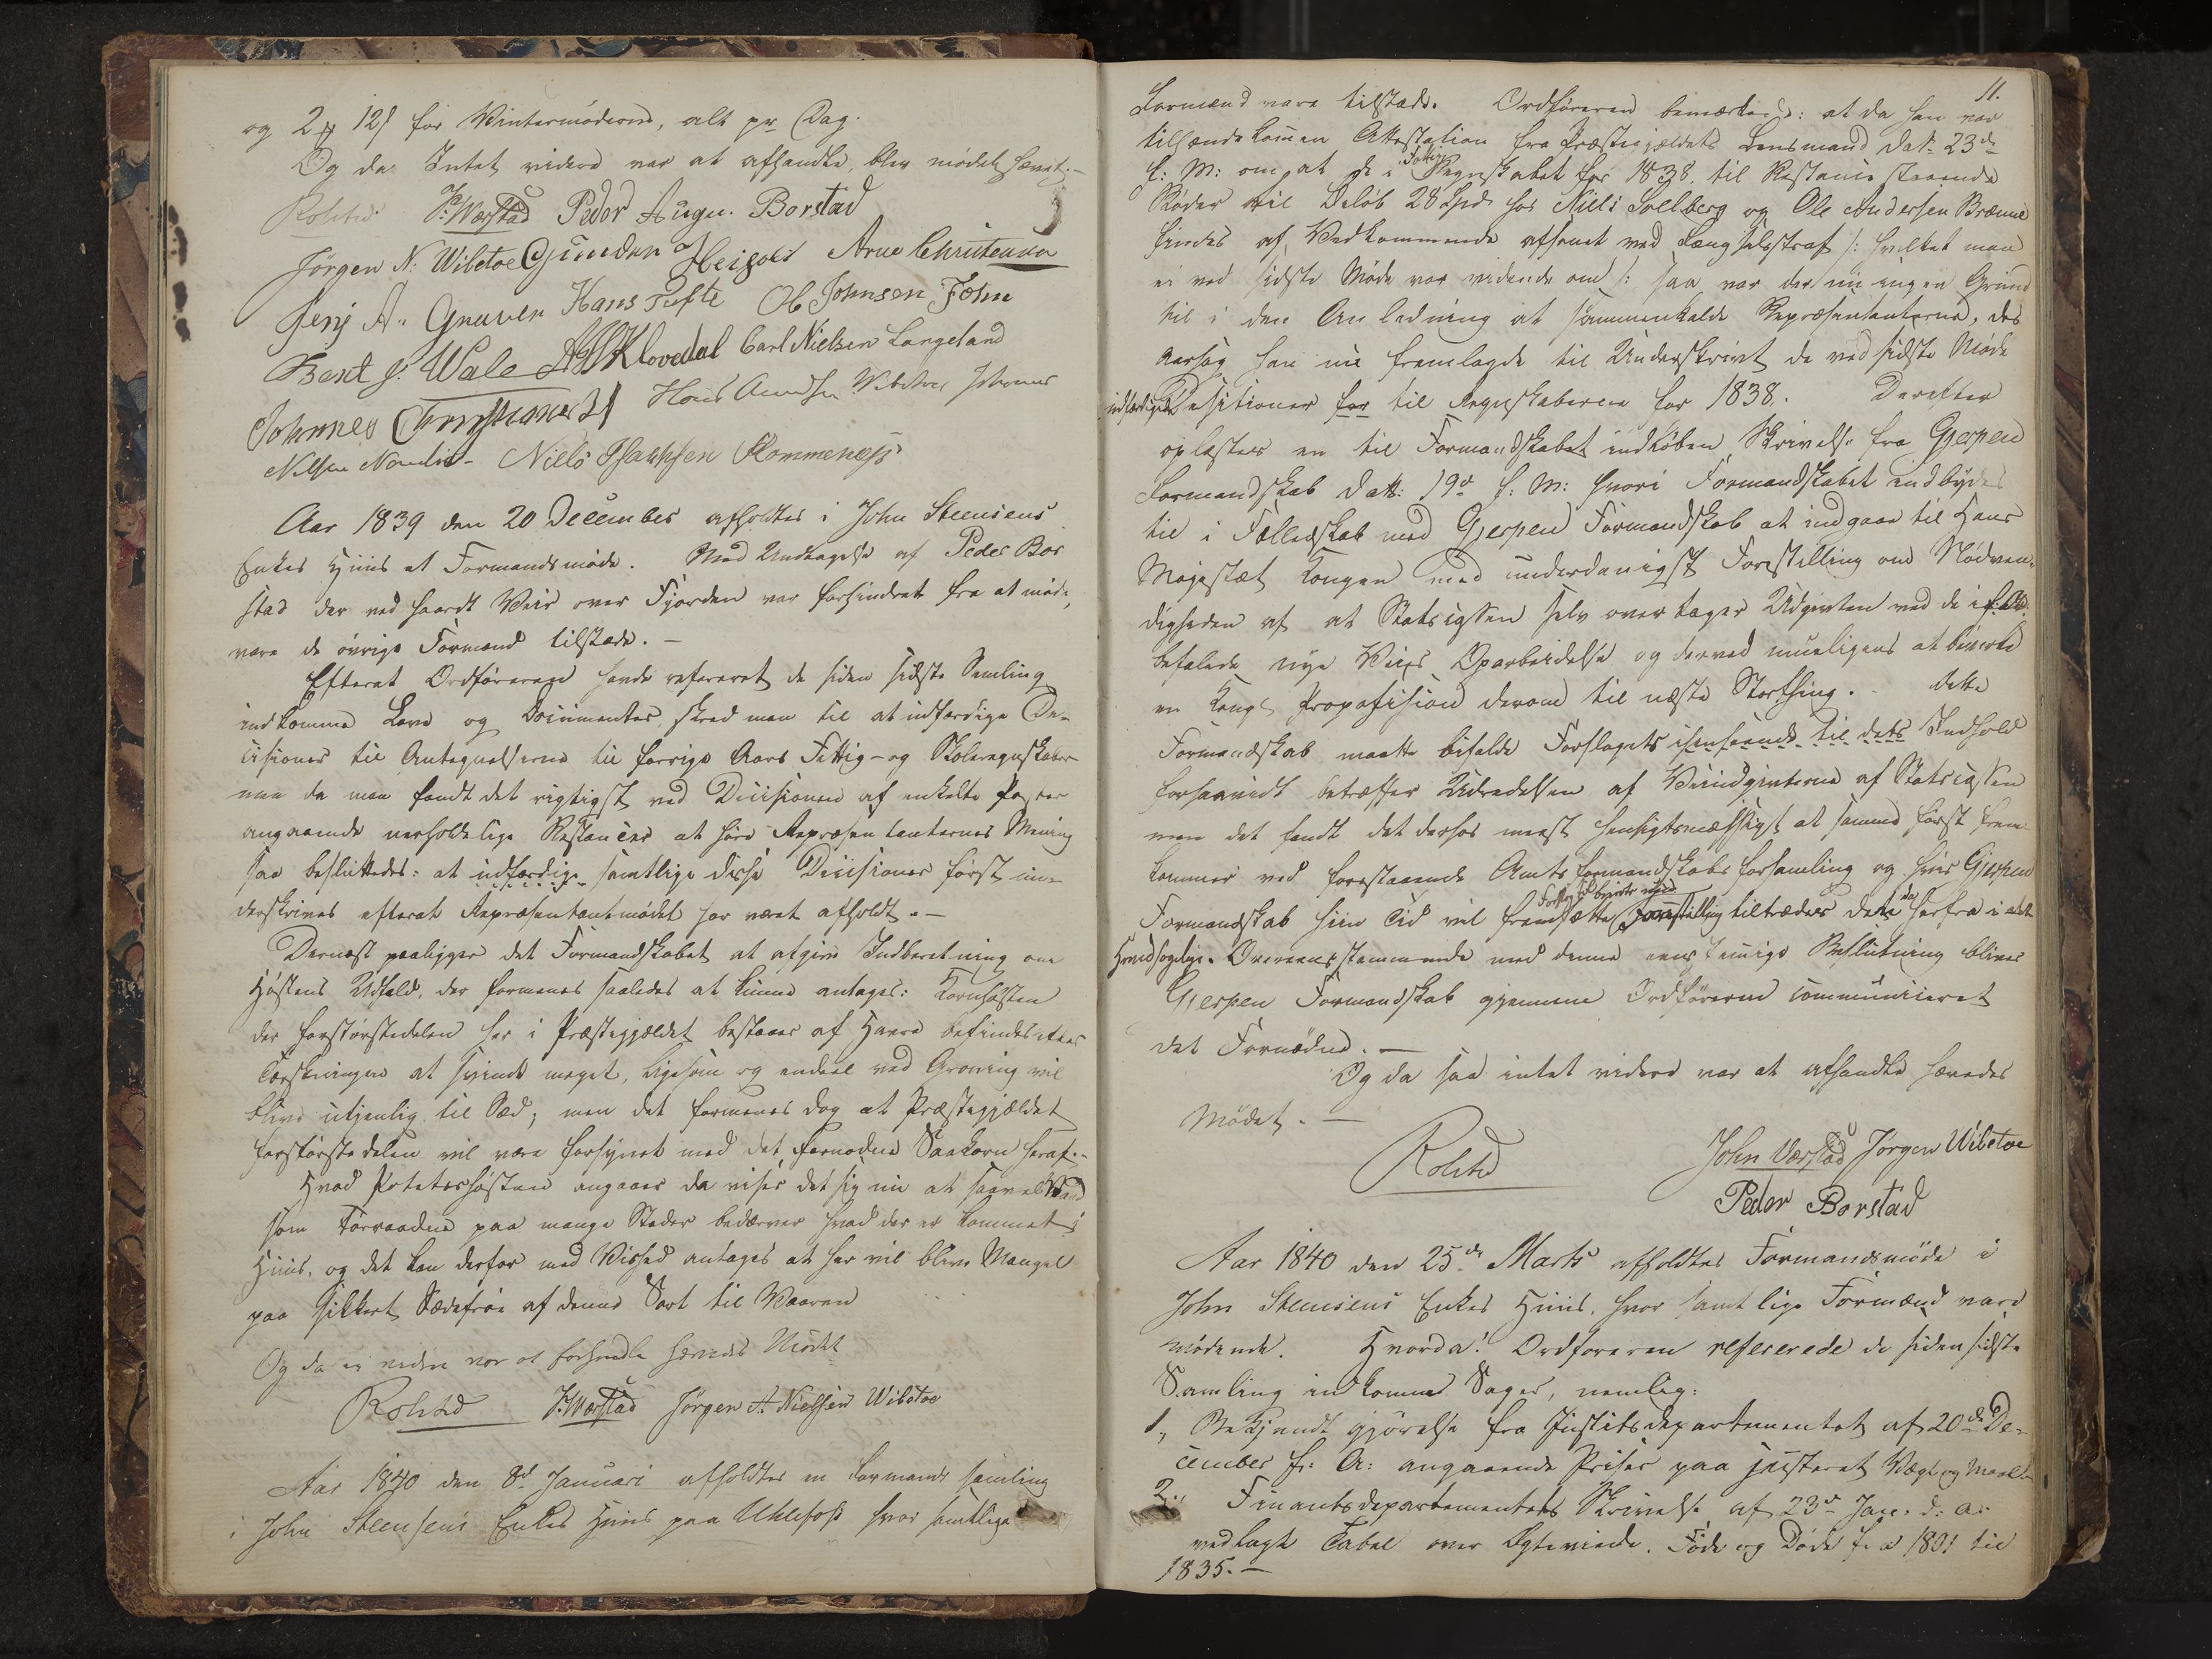 og 2 ₰ 12 s for Vintermøderne, alt pr Dag.
Og da Intet videre var at afhandle, blev mødet hævet.-
Rolsted J. Værstad Peder Augu. Borstad
Jörgen N: Wibetoe Gunder Heigoli Arne Christensen
Jens A.. Gruven Hans Tufte Ol Johnsen Fæhn
Bent J. Wale Klovedal Carl Nielsen Langeland
Johannes Christianes Hans Wibetoe
Niels Isachsen Flommenæs
Aar 1839 den 20 December afholdtes i John Steensens
Enkes Huus et Formandsmøde. Med Undtagelse af Peder Bor
stad der ved haardt Veir over Fjorden var forhindret fra at møde,
vare de øvrige Formænd tilstæde. -
Efterat Ordføreren havde refereret de siden sidste Samling
indkomne Love og Documenter, skred man til at udfærdige De-
cisioner til Antegnelserne til forrige Aars Fattig- og Skoleregnskaber-
ne da man fandt det rigtigst ved Decisionen af enkelte Poster
angaaende uerholdelige Restancer at høre Repræsentanternes Mening
saa besluttedes: at udfærdige samtlige disse Decisioner først un-
derskrives efterat Repræsentantmødet har været afholdt. -
Dernæst paaligger det Formandskabet at afgive Indberetning om
Høstens Udfald, der formenes saaledes at kunne antages: Kornhøsten
der forstørstedelen her i Præstegjældet bestaaer af Havre befindes efter
Tærskningen at svinde meget, ligesom og endeel ved Groning vil
blive utjenlig til Sæd; men det formenes dog at Præstegjældet
forstørstedelen vil være forsynet med det fornødne Saakorn heraf.-
Hvad Potetoshøsten angaaer da viser det sig nu at saavel Vaad
som Tørraadne paa mange Steder bedærver hvad der er kommet i
Huus, og det kan derfor med Vished antages at her vil blive Mangel
paa sikkert Sædefrøe af denne Sort til Vaaren
Og da ei videre var at forhandle hævedes Mødet
Rolsted J. Værstad Jørgen A. Nielsen Wibetoe
Aar 1840 den 8d Januari afholdtes en Formands samling
i John Steensens Enkes Huus paa Uhlefoss hvor samtlige
11.
Formænd vare tilstæde. Ordføreren bemærkede: at da han var
tilhændekommen Attestation fra Præstegjældets Lensmand dat. 23de
f: M: om, at de i Fattig Regnskabet for 1838. til Restance staaende
Bøder til Beløb 28 Spd. hos Niels Solberg og Ole Andersen Brænne
findes af Vedkommende afsonet ved Fængselsstraf /: hvilket man
ei ved sidste Møde var vidende om :/ saa var der nu ingen Grund
til i den Anledning at sammenkalde Repræsentanterne, des
aarsag han nu fremlagde til Underskrivt de ved sidste Møde
udfærdigede Desitioner for til Regnskaberne for 1838. Derefter
oplæstes en til Formandskabet indløben Skrivelse fra Gjerpen
Formandskab datt: 19d f: M: hvori Formandskabet indbydes
til i Fælledskab med Gjerpen Formandskab at indgaae til Hans
Majestæt Kongen med underdanigst Forestilling om Nødven-
digheden af at Statscassen selv overtager Udgivten ved de i f: A:
befalede nye Veies Oparbeidelse og derved mueligens at bevirke
en Kongl Proposision derom til næste Storthing. - dette
Formandskab maatte bifalde Forslagets i henseende til dets Indhold
forsaavidt betræffer Udredelsen af Veiudgivterne af Statscassen
men det fandt det derhos meest hensigtsmæssigst at samme først frem
kommer ved forestaaende Amtsformandskabs forsamling og hvis Gjerpen
Formandskab siin Tid vil fremsætte Forestilling tiltrædes dette da herfra i alt
Hensigtsgelige. Overensstemmende med denne eenstemmige Beslutning bliver
Gjerpen Formandskab gjennem Ordføreren communiceret
det Fornødne. -
Og da saa intet videre var at afhandle hævedes
Mødet. -
Rolsted John Værstad Jørgen Wibetoe
Peder Borstad
Aar 1840 den 25de Marts afholdtes Formandsmøde i
John Steensens Enkes Huus, hvor samtlige Formænd vare
mødende. Hvorda! Ordføreren refererede de siden sidste
Samling indkomne Sager, nemlig:
1, Bekjendtgjørelse fra Justitsdepartementet af 20de De-
cember f: A: angaaende Priser paa justeret Vægt og Maal
2., Finantsdepartementets Skrivelse af 23d Jan. d: a:
vedlagt Tabel over Ægteviede, Føde og Døde fra 1801 til
1835. -